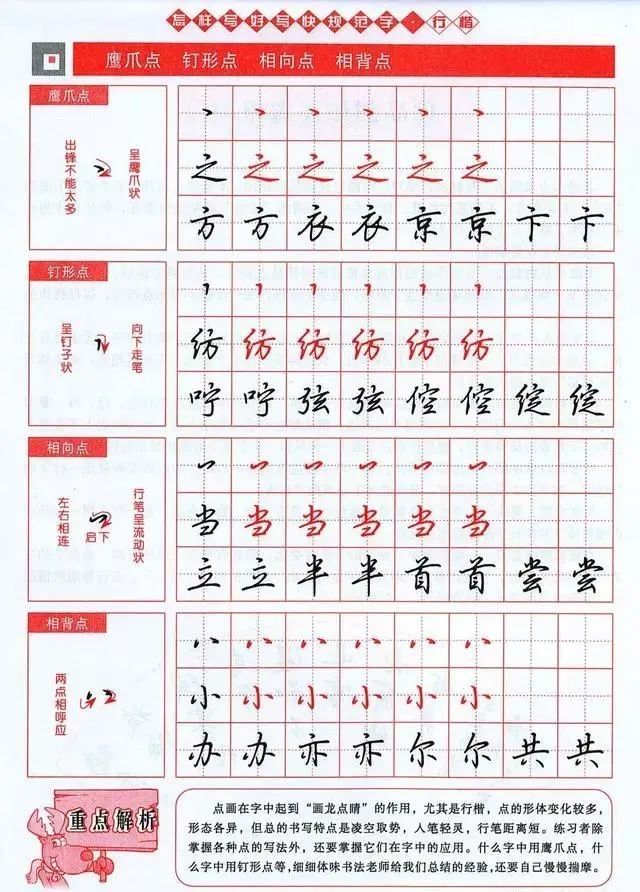 怎样写好写快规范字·行楷
鹰爪点 钉形点 相向点 相背点
鹰爪点
出锋不能太多
呈鹰爪状
丶 丶 丶 丶 丶 丶
之 之 之 之 之 之
方 方 衣 衣 京 京 卞 卞
钉形点
呈钉子状
向下走笔
纺 纺 纺 纺 纺 纺
咛 咛 弦 弦 倥 倥 绽 绽
相向点
左右相连
启下
行笔呈流动状
当 当 当 当 当 当
立 立 半 半 首 首 尝 尝
相背点
两点相呼应
小 小 小 小 小 小
办 办 亦 亦 尔 尔 共 共
重点解析
点画在字中起到“画龙点睛”的作用，尤其是行楷，点的形体变化较多，
形态各异，但总的书写特点是凌空取势，入笔轻灵，行笔距离短。练习者除
掌握各种点的写法外，还要掌握它们在字中的应用。什么字中用鹰爪点，什
么字中用钉形点等，细细体味书法老师给我们总结的经验，还要自己慢慢揣摩。